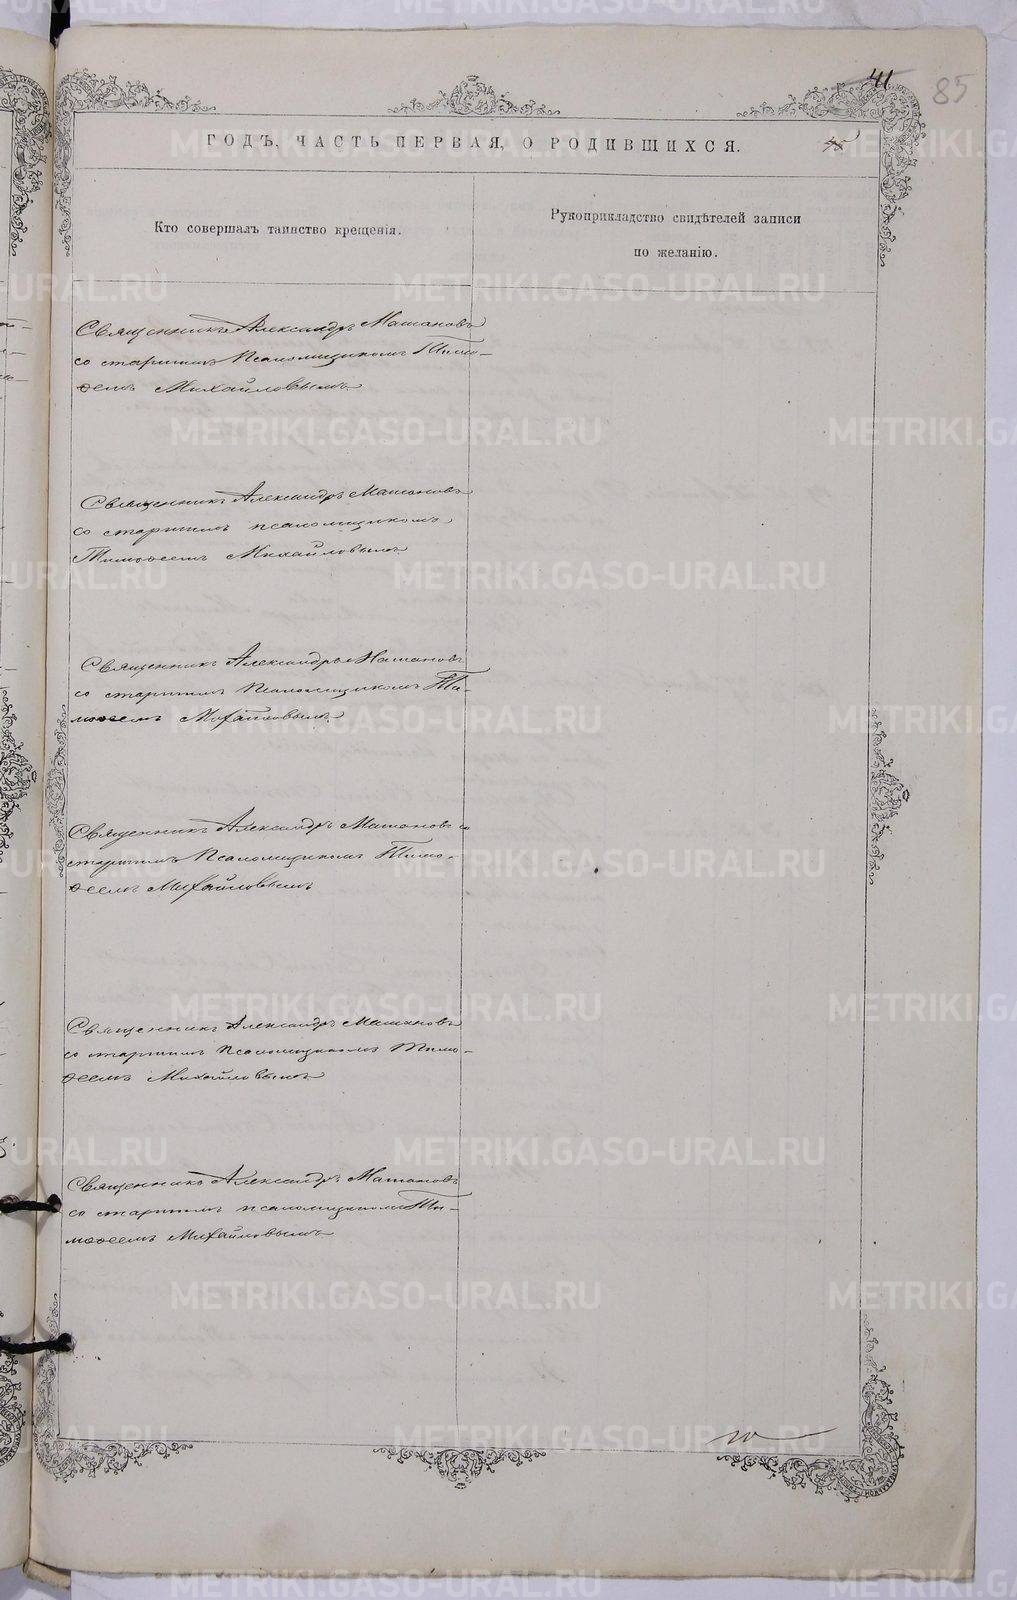 41
85
ГОДЪ, ЧАСТЬ ПЕРВАЯ, О РОДИВШИХСЯ.
Кто совершалъ таинство крещенія.
Рукоприкладство свидѣтелей записи
по желанію.
Священникъ Александръ Машановъ
со старшимъ Псаломщикомъ Тимо-
ѳеемъ Михайловымъ
Священникъ Александръ Машановъ
со старшимъ псаломщикомъ
Тимоѳеемъ Михайловымъ
Священникъ Александръ Машановъ
со старшимъ Псаломщикомъ Ти-
моѳеемъ Михайловымъ
Священникъ Александръ Машановъ со
старшимъ Псаломщикомъ Тимо-
ѳеемъ Михайловымъ
Священникъ Александръ Машановъ
со старшимъ Псаломщикомъ Тимо-
ѳеемъ Михайловымъ
Священникъ Александръ Машановъ
со старшимъ псаломщикомъ Ти-
моѳеемъ Михайловымъ
METRIKI.GASO-URAL.RU